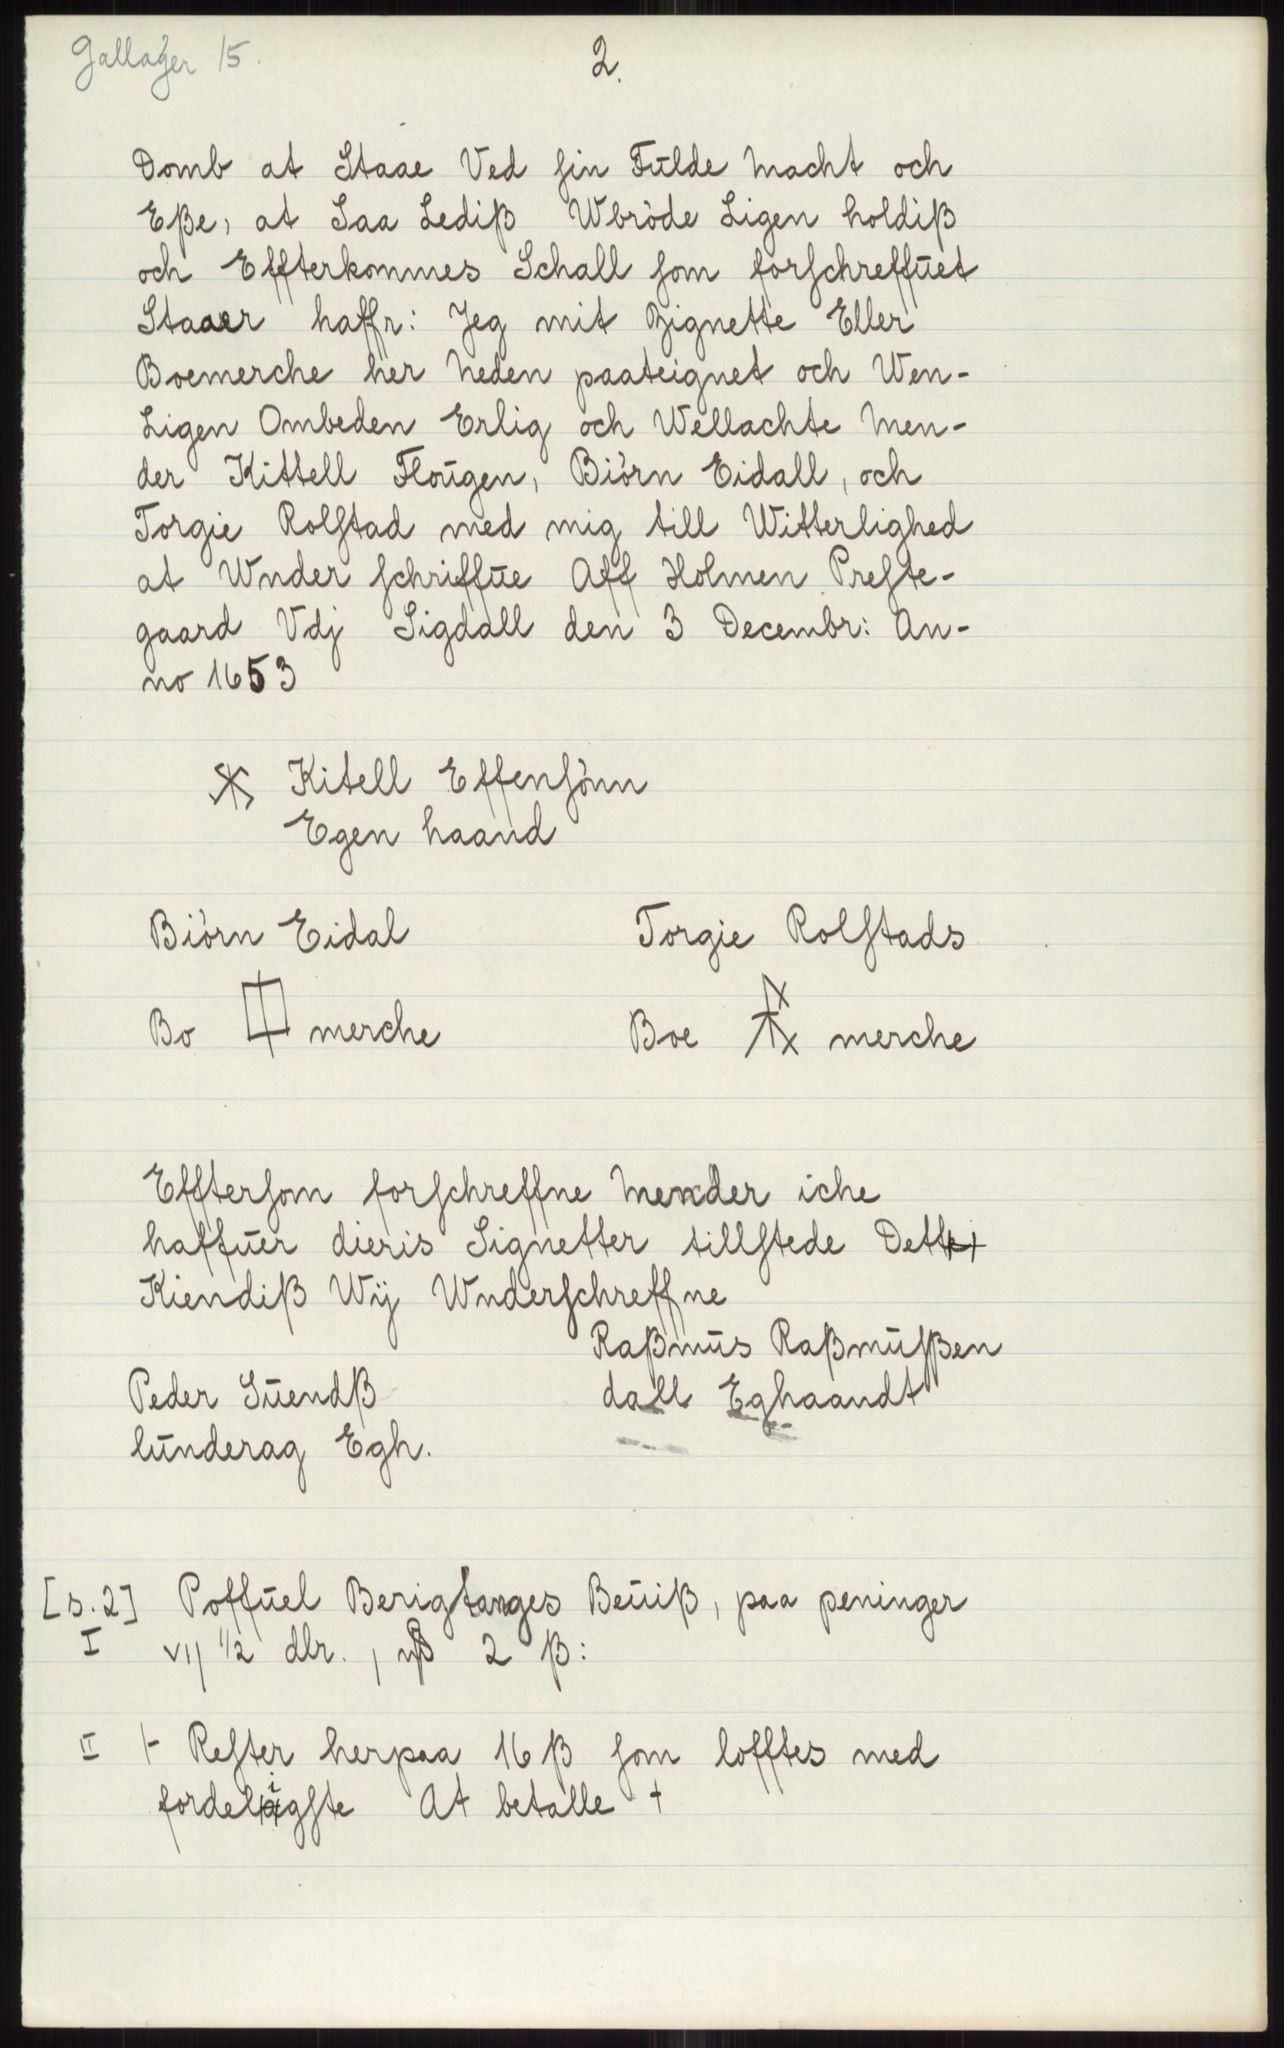 Gallager 15.
2.
Domb at Staae Ved sin Fulde Macht och
Eße, at Saa Lediß Wbröde Ligen holdiß
och Effterkommes Schall som forschreffuet
Staaer haffr: Jeg mit Zignette Eller
Boemerche her Neden paateignet och Wen-
Ligen Ombeden Erlig och Wellachte Men-
der Kittell Flougen, Biörn Eidall, och
Torgie Rolstad med mig till Witterlighed
at Wnder schriffue Aff Holmen Preste-
gaard Vdj Sigdall den 3 Decembr: An-
no 1653
Kitell Effensönn
Egen haand
Biörn Eidal Torgie Rolstads
Bo merche Boe merche
Efftersom forschreffne Mender iche
haffuer dieris Signetter tillstede Dett
Kiendiß Wij Wnderschreffne
Raßmus Raßmusßen
Peder Suendß dall Eghaandt
lunderag Egh.
[s. 2] Poffuel Berigtanges Beuiß, paa peninger
I vij 1/2 dlr., 2 ß:
II Rester herpaa 16 ß som lofftes med
fordeligste At betalle +